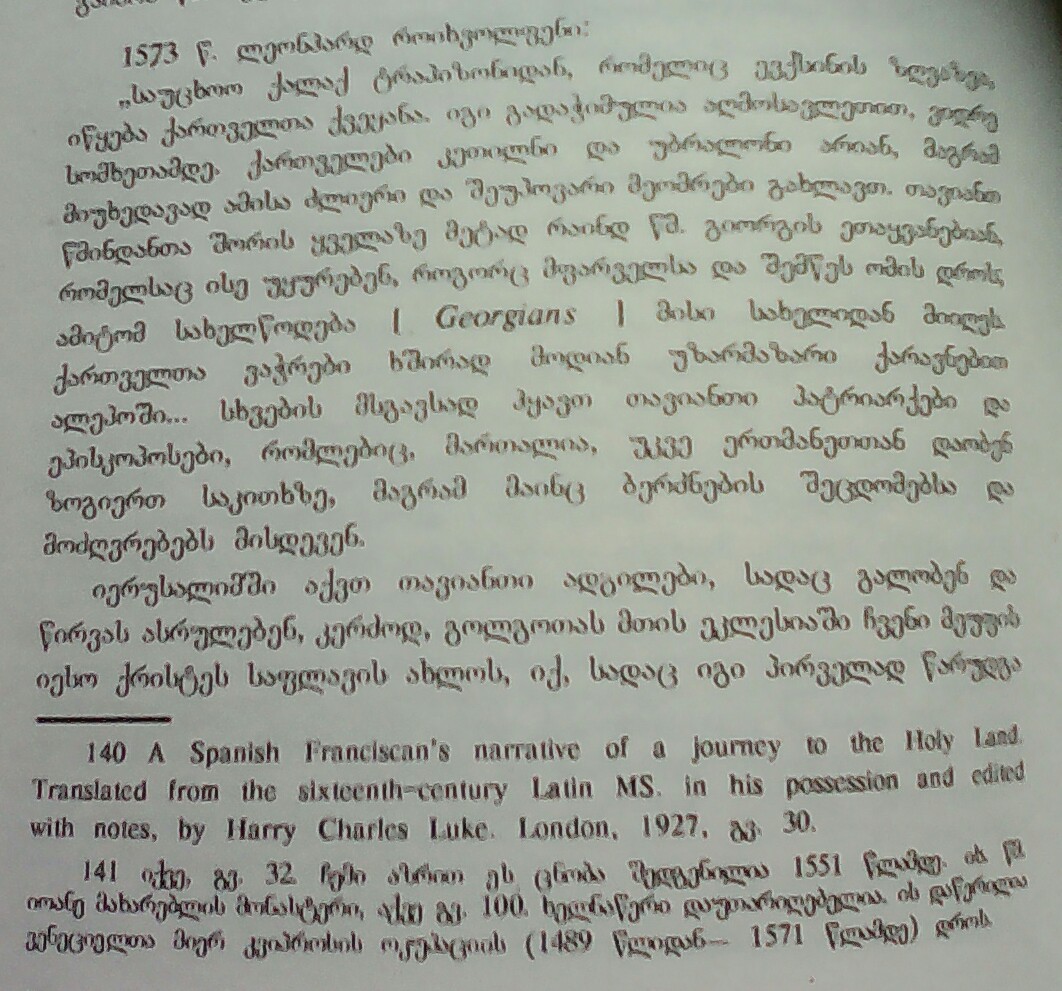 1573 წ. ლეონჰარდ როიხვოლფენი:
„საუცხოო ქალაქ ტრაპიზონიდან, რომელიც ევქსინის ზღვაზეა,
იწყება ქართველთა ქვეყანა. იგი გადაჭიმულია აღმოსავლეთით, ვიდრე
სომხეთამდე. ქართველები კეთილნი და უბრალონი არიან, მაგრამ
მიუხედავად ამისა ძლიერი და შეუპოვარი მეომრები გახლავთ. თავიანთ
წმინდანთა შორის ყველაზე მეტად რაინდ წმ. გიორგის ეთაყვანებიან,
რომელსაც ისე უყურებენ, როგორც მფარველსა და შემწეს ომის დროს,
ამიტომ სახელწოდება | Georgians | მისი სახელიდან მიიღეს.
ქართველთა ვაჭრები ხშირად მოდიან უზარმაზარი ქარავნებით
ალეპოში... სხვების მსგავსად ჰყავთ თავიანთი პატრიარქები და
ეპისკოპოსები, რომლებიც, მართალია, უკვე ერთმანეთთან დაობენ
ზოგიერთ საკითხზე, მაგრამ მაინც ბერძნების შეცდომებსა და
მოძღვრებებს მისდევენ.
იერუსალიმში აქვთ თავიანთი ადგილები, სადაც გალობენ და
წირვას ასრულებენ, კერძოდ, გოლგოთას მთის ეკლესიაში ჩვენი მეუფის
იესო ქრისტეს საფლავის ახლოს, იქ, სადაც იგი პირველად წარუდგა
140 A Spanish Franciscan's narrative of a journey to the Holy Land.
Translated from the sixteenth-century Latin MS. in his possession and edited
with notes, by Harry Charles Luke. London, 1927, გვ. 30.
141 იქვე, გვ. 32. ჩემი აზრით ეს ცნობა შედგენილია 1551 წლამდე. იხ. წმ.
იოანე მახარებლის მონასტერი, იქვე გვ. 100. ხელნაწერი დაუთარიღებელია. ის დაწერილია
ვენეციელთა მიერ კვიპროსის ოკუპაციის (1489 წლიდან— 1571 წლამდე) დროს